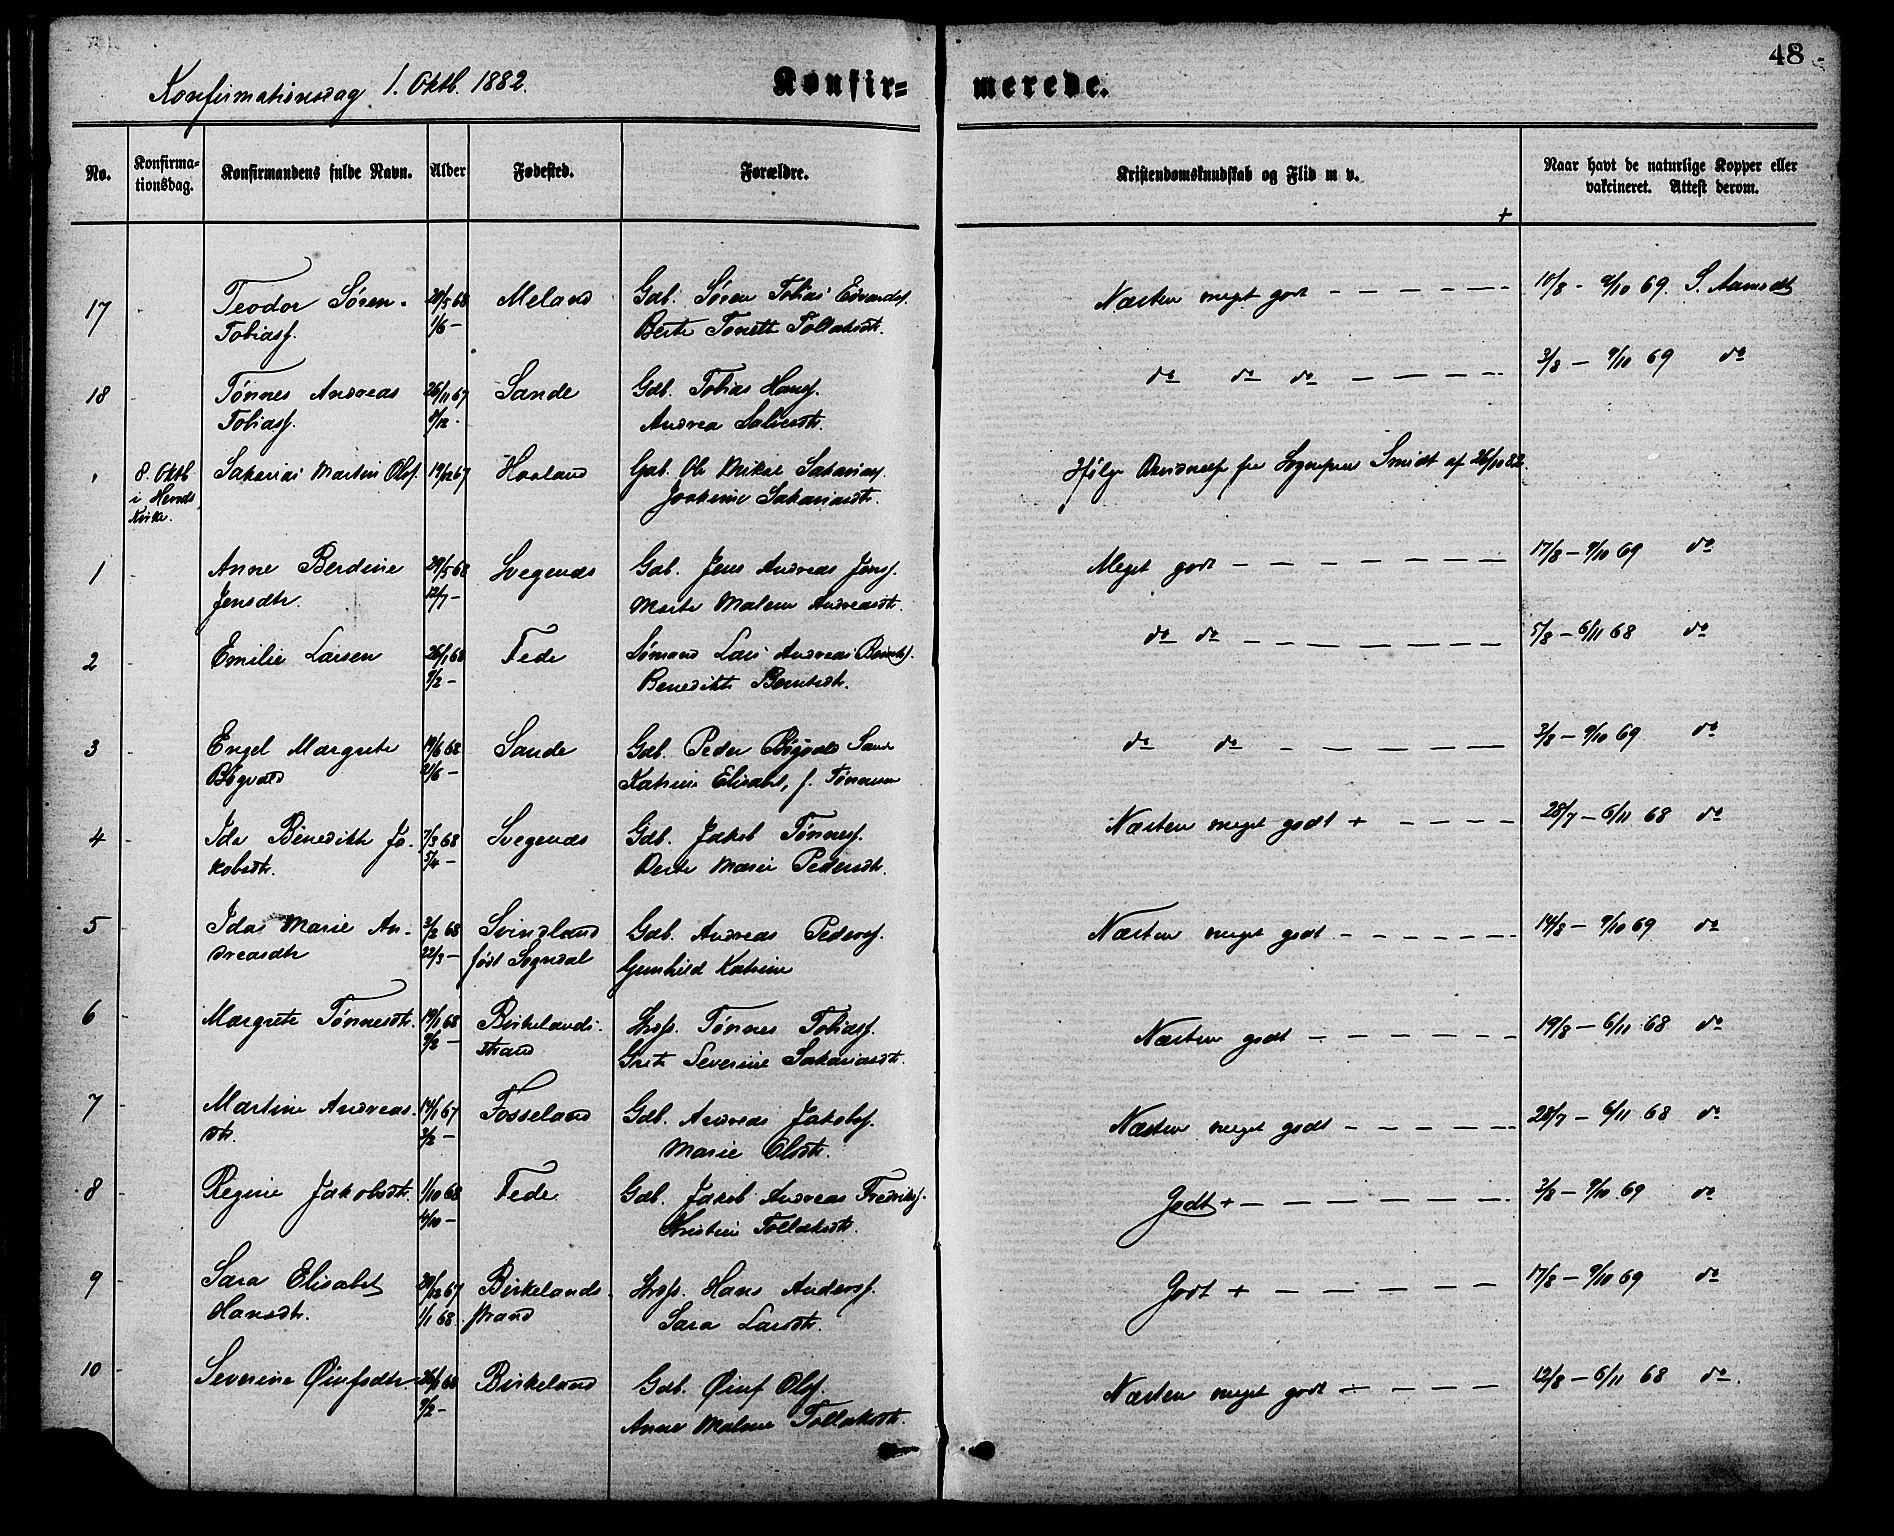 48
Konfirmationsdag 1. Oktb. 1882.
Konfir- merede.
No. Konfirma- tionsdag. Konfirmandens fulde Navn. Alder Fødested. Forældre. Kristendomskundskab og Flid m v. Naar havt de naturlige Kopper eller vakcineret. Attest derom.
+
17 - Teodor Søren 20/5 68 Meland Gdb. Søren Tobias Edvardsf. Næsten meget godt 10/8 - 9/10 69. S. Aamodt
Tobiasf. 1/6 - Berte Tonette Tollaksdtr.
18 - Tønnes Andreas 26/11 67 Sande Gdb. Tobias Hansf. do do do 3/8 - 9/10 69 do
Tobiasf. 8/12 - Andrea Salvesdtr.
8. Oktb. Sakarias Martin Olsf. 19/12 67 Haaland Gab. Ole Mikal Sakariasf. Ifølge fra Sognepræst Smidt af 26/10 82.
i Herads Joakime Sakariasdtr.
Kirke.
1 - Anne Berdine 29/5 68 Svegenæs Gab. Jens Andreas Jensf. Meget godt 17/8 - 9/10 69 do
Jensdtr. 12/7 - Marte Malene Andreasdtr.
2 - Emilie Larsen 26/1 68 Fede Sømand Lars Andreas Berntsf. do do 5/8 - 6/11 68 do
9/2 - Benedikte Berntsdtr.
3 - Engel Margrete 19/6 68 Sande Gdb. Peder Bøgvald Sande do do 3/8 - 9/10 69 do
Bøgvald 21/6 - Katrine Elisabet, f. Tønnesen
4 - Ida Benedikte Ja- 7/3 68 Svegenæs Gdb. Jakob Tønnesf. Næsten meget godt + 28/7 - 6/11 68 do
kobsdtr. 5/4 - Berte Marie Pedersdtr.
5 - Idas Marie An- 3/2 68 Svindland Gdb. Andreas Pedersf. Næsten meget godt 14/8 - 9/10 69 do
dreasdtr 22/3 - født Sogndal Gunhild Katrine
6 - Margrete Tønnesdtr. 19/1 68 Birkelands- Strfs. Tønnes Tobiasf. Næsten godt 19/8 - 6/11 68 do
9/2 - strand Grete Severine Sakariasdtr.
7 - Martine Andreas- 14/1 67 Fosseland Gdb. Andreas Jakobsf. Næsten meget godt 28/7 - 6/11 68 do
dtr. 3/2 - Marie Olsdtr.
8 - Regine Jakobsdtr. 1/10 68 Fede Gdb. Jakob Andreas Fredriksf. Godt + 3/8 - 9/10 69 do
4/10 - Kristine Tollaksdtr.
9 - Sara Elisabet 20/12 67 Birkelands- Strfs. Hans Andersf. Godt + 17/8 - 9/10 69 do
Hansdtr. 1/1 68. strand Sara Larsdtr.
10 - Severine Øiufsdtr. 68 Birkeland Gdb. Øiuf Olsf. Næsten meget godt 12/8 - 6/11 68 do.
9/2 - Anne Malene Tollaksdtr.